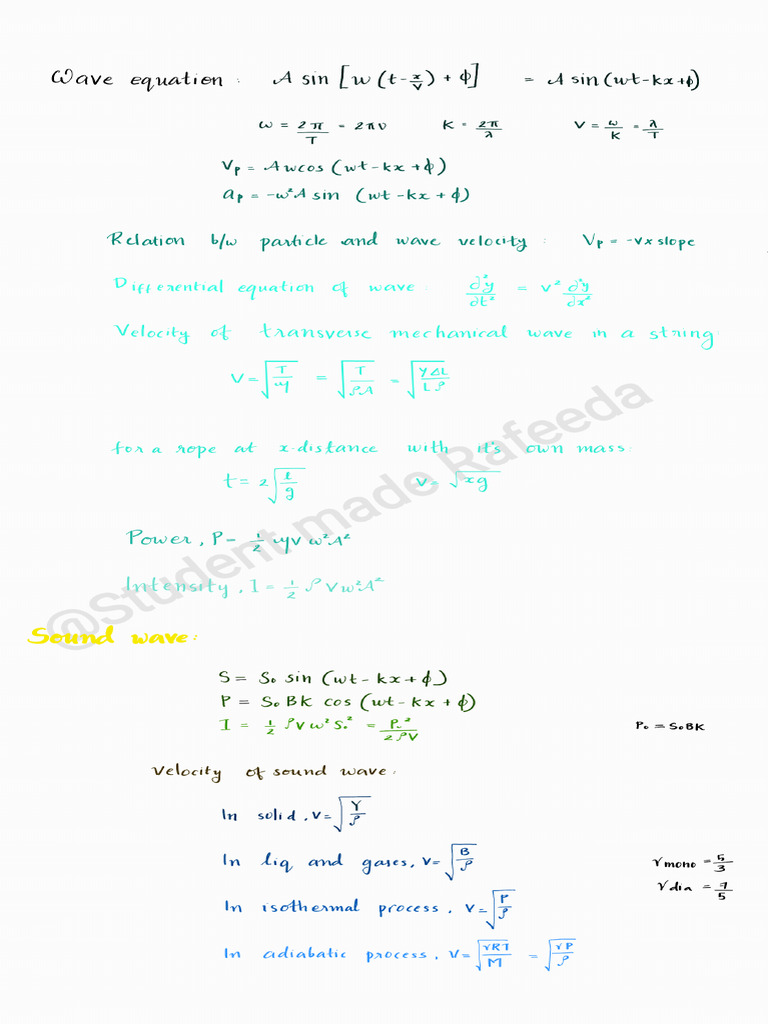 Wave equation: A sin [w (t - x/v) + ϕ] = A sin (wt - kx + ϕ)
ω = 2π/T = 2πν K = 2π/λ V = ω/K = λ/T
Vp = Aw cos (wt - kx + ϕ)
ap = -ω²A sin (wt - kx + ϕ)
Relation b/w particle and wave velocity: Vp = -v x slope
Differential equation of wave: ∂²y/∂t² = v² ∂²y/∂x²
Velocity of transverse mechanical wave in a string
V = √(T/μ) = √(T/ρA) = √(YΔL/Lρ)
for a rope at x-distance with it's own mass:
t = 2√(l/g) v = √xg
Power, P = 1/2 μV ω²A²
Intensity, I = 1/2 ρVω²A²
@Student made Rafeeda
Sound wave:
S = S₀ sin (wt - kx + ϕ)
P = S₀BK cos (wt - kx + ϕ)
I = 1/2 ρVω²S₀² = P₀²/2ρV P₀ = S₀BK
Velocity of sound wave:
In solid, v = √(Y/ρ)
In liq and gases, v = √(B/ρ) γmono = 5/3
γdia = 7/5
In isothermal process, v = √(P/ρ)
In adiabatic process, v = √(γRT/M) = √(γP/ρ)